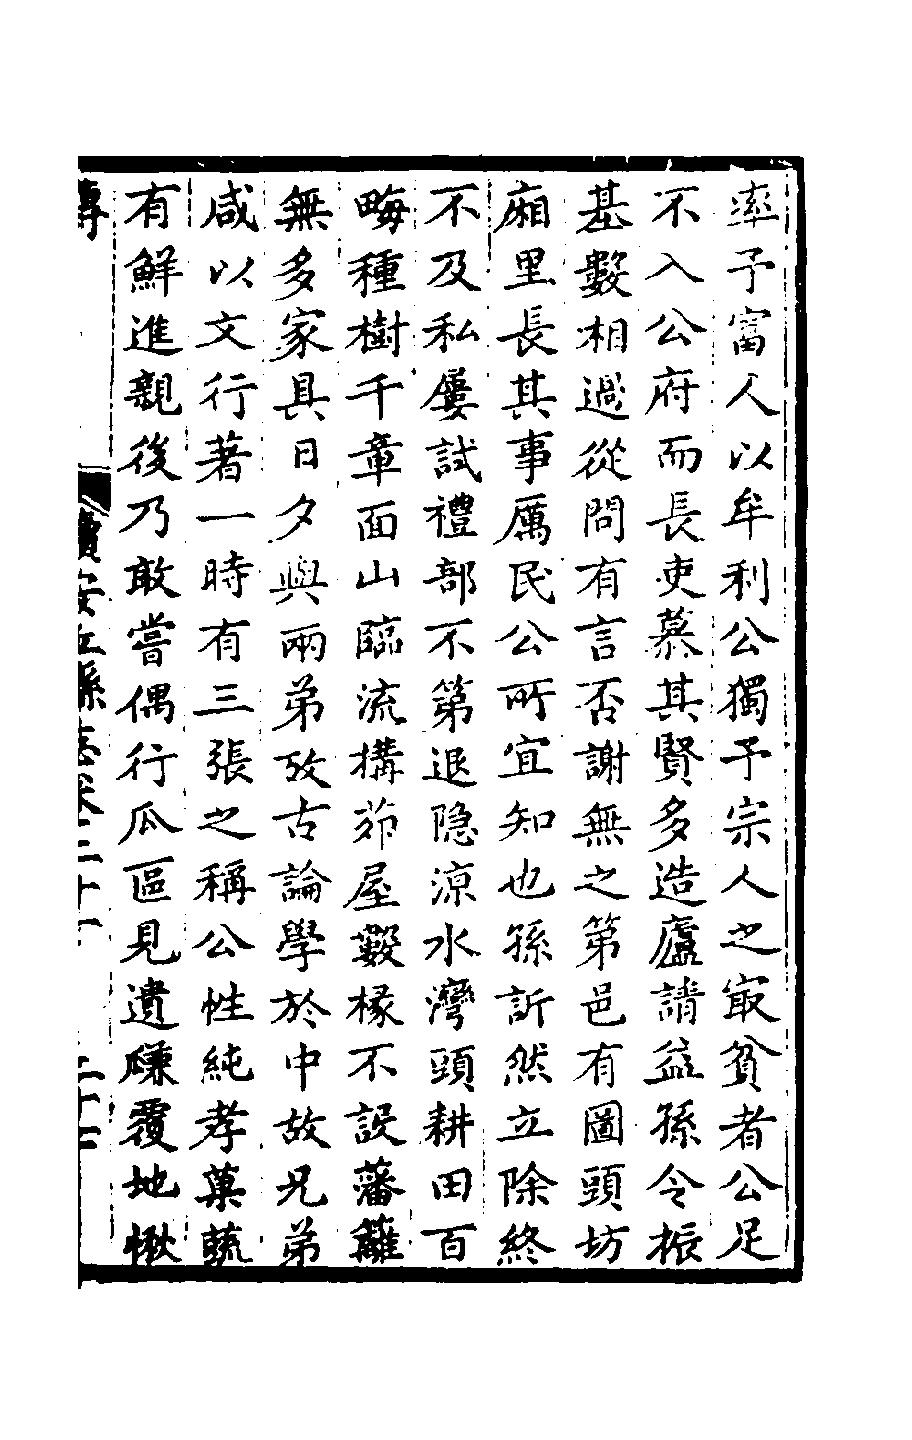 率予富人以牟利公獨予宗人之㝡貧者公足
不入公府而長吏慕其賢多造廬請益孫令振
基數相過從問有言否謝無之第邑有圖頭坊
廂里長其事厲民公所宜知也孫訢然立除終
不及私屢試禮部不第退隐涼水灣頭耕田百
畮種樹千章面山臨流構茆屋數椽不設藩籬
無多家具日夕與兩弟攷古論學於中故兄弟
咸以文行著一時有三張之稱公性純孝菓蓏
有鮮進親後乃敢嘗偶行瓜區見遺𤬓覆地愀
傳
續安丘縣志卷二十
二十七